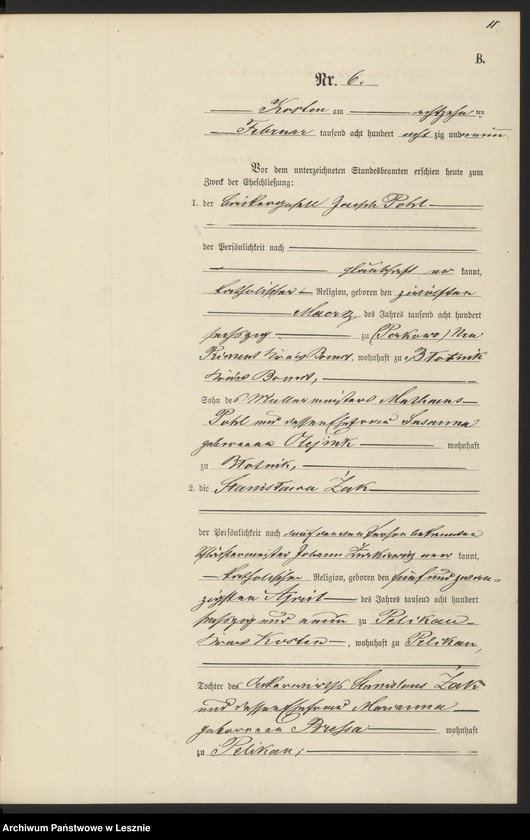 11
B.
Nr. 6.
Kosten am achtzehn ten
Februar tausend acht hundert acht zig und neun
Vor dem unterzeichneten Standesbeamten erschien heute zum
Zweck der Eheschließung:
1. der Bäckergesell Joseph Pohl
der Persönlichkeit nach
glaubhaft er kannt,
katholischer Religion, geboren den zwölften
Maerz des Jahres tausend acht hundert
sechszig zu
Kreis Bomst, wohnhaft zu
Kreis Bomst,
Sohn des Müllermeisters
Pohl und dessen Ehefrau Susanna
geborenen Olejnik wohnhaft
zu
2. die Stanislawa Żak
der Persönlichkeit nach durch den von Person bekannten
Johann er kannt,
katholischer Religion, geboren den fünf und zwan-
zigsten April des Jahres tausend acht hundert
sechszig und neun zu Pelikan
Kreis Kosten, wohnhaft zu Pelikan,
Tochter des Ackerwirths Stanislaus Żak
und dessen Ehefrau Marianna
geborenen wohnhaft
zu Pelikan,
Archiwum Państwowe w Lesznie